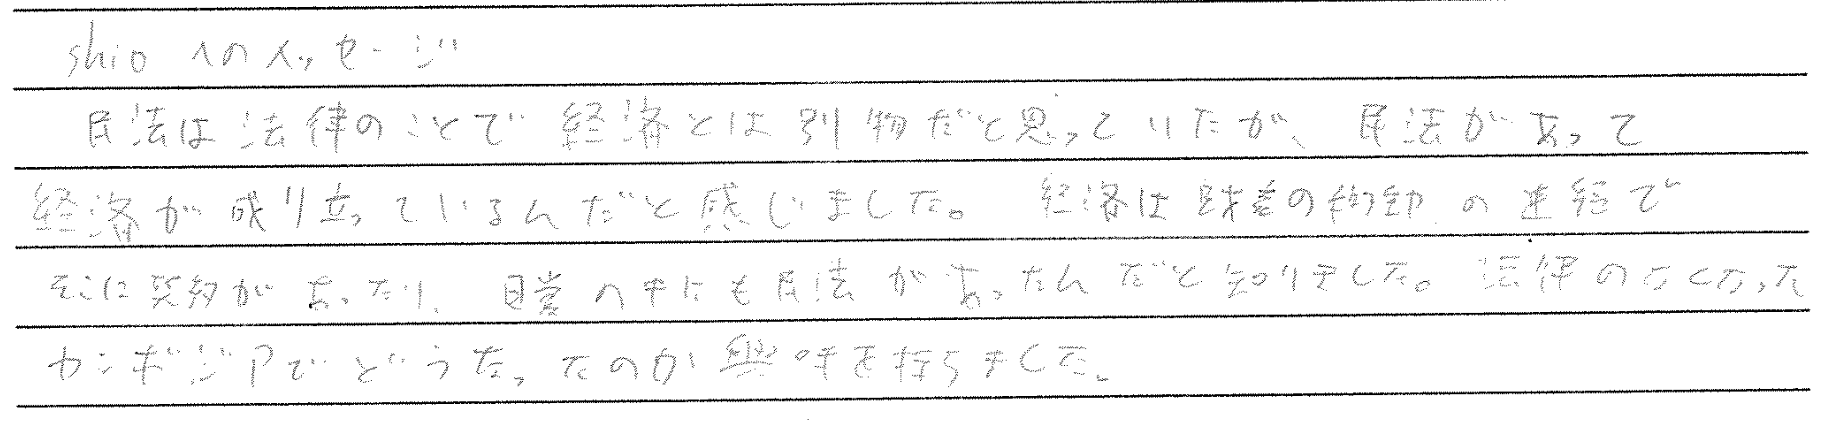 shioへのメッセージ
民法は法律のことで経済とは別物だと思っていたが、民法があって
経済が成り立っているんだと感じました。経済は財産の移動の連続で
そこに契約があったり、日常の中にも民法があったんだと知りました。法律のなくなった
カンボジアでどうなったのか興味を持ちました。